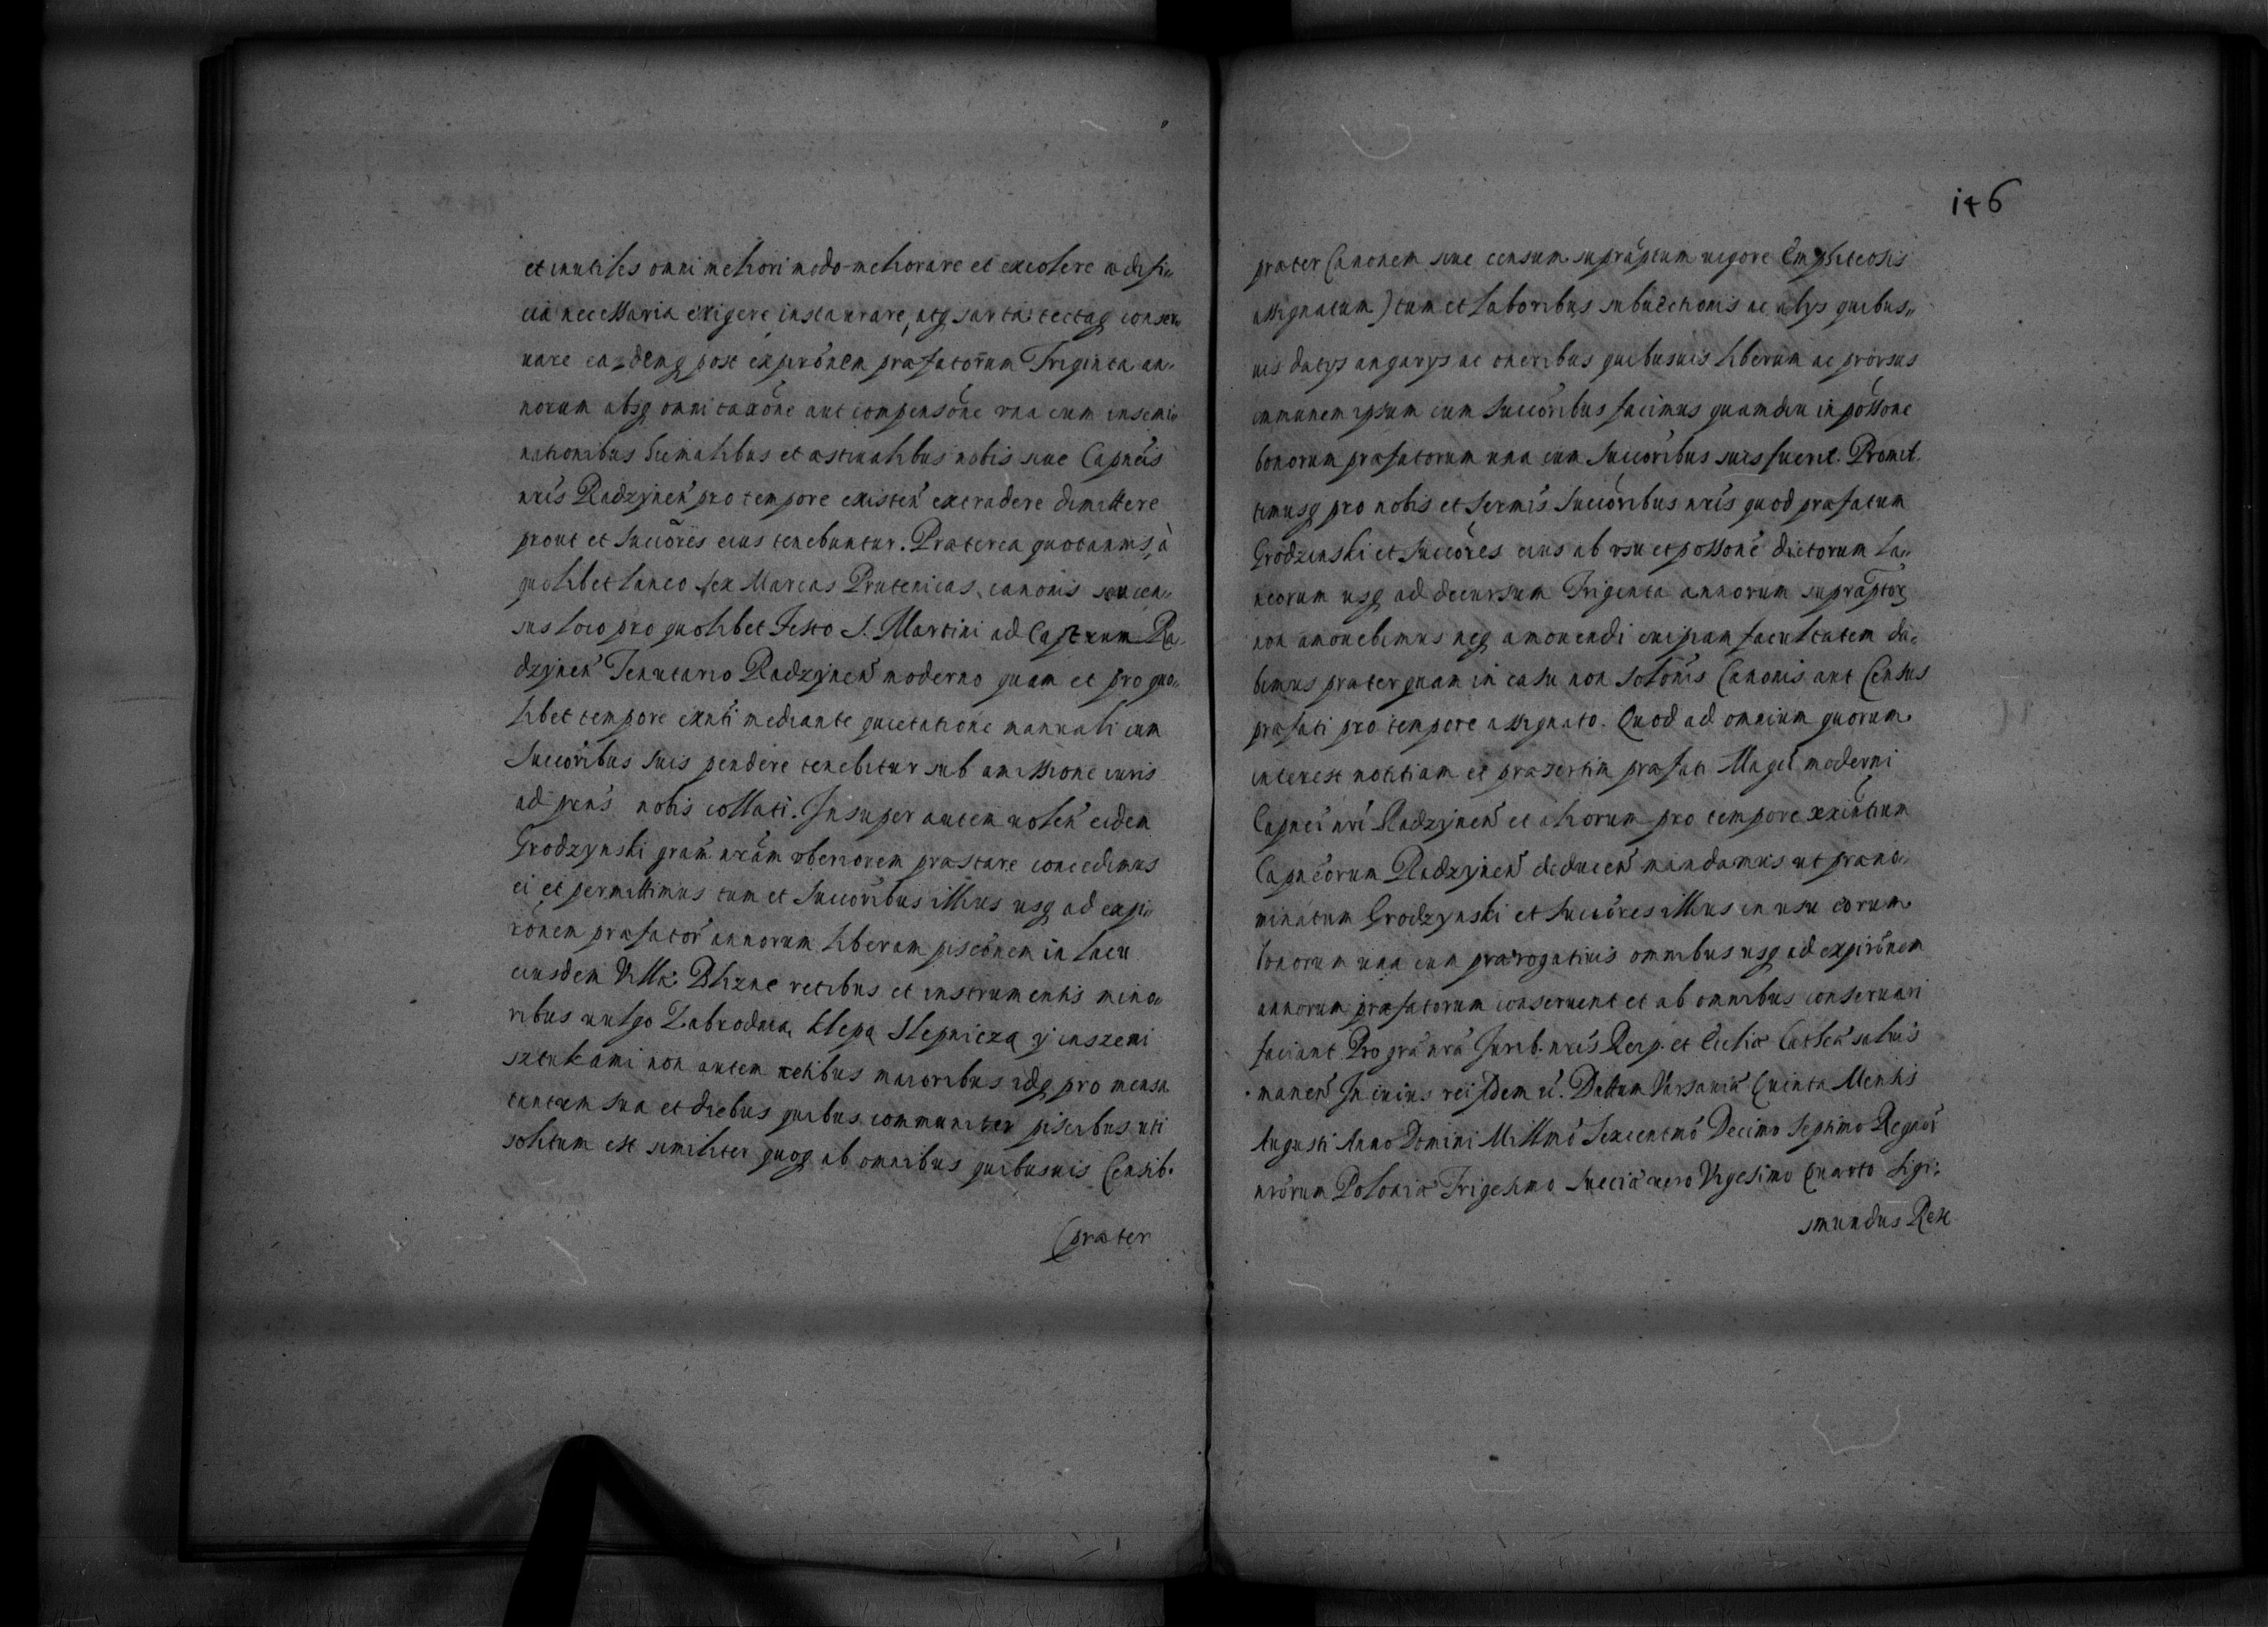 et inutiles omni meliori modo meliorare et excolere ædifi„
cia necessaria erigere, instaurare, atq sarta tectaq conser„
uare eademq post expirõnem præfatorum Triginta an„
norum absq omni taxõne aut compensõne vna cum insemi„
nationibus hiemalibus et æstiualibus nobis siue Capneis
nris Radzynen pro tempore existen extradere dimittere
prout et Succõres eius tenebuntur. Præterea quotannis, à
quolibet laneo sex Marcas Prutenicas, canonis seu cen„
sus loco pro quolibet Festo S. Martini ad Castrum Ra„
dzynen Tenutario Radzynen moderno quam et pro quo„
libet tempore exnti mediante quietatione manuali cum
Succõribus suis pendere tenebitur sub amissione iuris
ad præns nobis collati. Insuper autem uolen eidem
Grodzynski gram nram vberiorem præstare concedimus
ei et permittimus tum et Succõribus illius usq ad expi„
rõnem præfator annorum liberam piscõnem in lacu
eiusdem Villæ Blizne retibus et instrumentis mino„
ribus uulgo Zabrodnia, klepą Slepnicza y inszemi
sztukami non autem retibus maioribus idq pro mensa
tantum sua et diebus quibus communiter piscibus uti
solitum est similiter quoq ab omnibus quibusuis Censib.
(præter
146
præter Canonem siue censum supraptum uigore Emphiteosis
assignatum) tum et laboribus subuectionis ac alys quibus„
uis datys angarys ac oneribus quibusuis liberum ac prorsus
immunem ipsum cum Succõribus facimus quamdiu in possõne
bonorum præfatorum una cum Succõribus suis fuerit. Promit„
timusq pro nobis et Sermis Succõribus nris quod præfatum
Grodzinski et Succõres eius ab vsu et possõne dictorum la„
neorum usq ad decursum Triginta annorum supraptorq
non amouebimus neq amouendi cuipiam facultatem da„
bimus præterquam in casu non solõnis Canonis aut Census
præfati pro tempore assignato. Quod ad omnium quorum
interest notitiam et præsertim præfati Magci moderni
Capnei nri Radzynen et aliorum pro tempore exintium
Capneorum Radzynen deducen mandamus ut præno„
minatum Grodzynski et Succõres illius in usu eorum
bonorum una cum prærogatiuis omnibus usq ad expirõnem
annorum præfatorum conseruent et ab omnibus conseruari
faciant Pro gra nra Jurib. nris Reip. et Eccliæ Catlcæ saluis
manen In cuius rei fidem &. Dattum Varsauiæ Quinta Mensis
Augusti Anno Domini Millmo Sexcentmo Decimo Septimo Regnor
nrorum Poloniæ Trigesimo Sueciæ uero Vigesimo Quarto Sigi„
smundus Rex